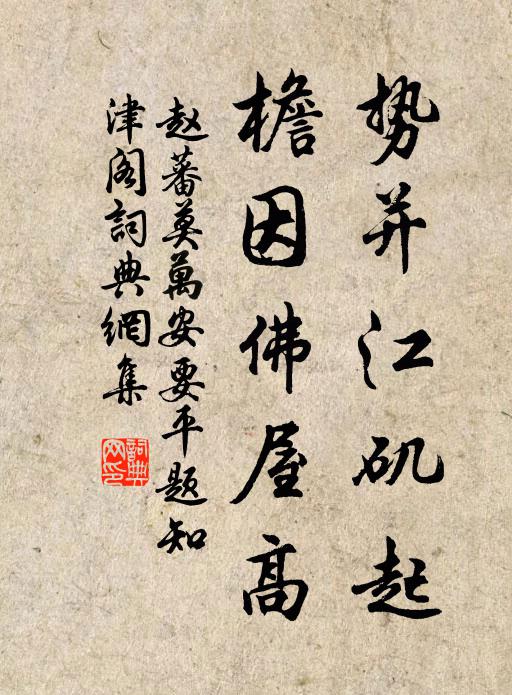 势并江矶起
檐因佛屋高
赵蕃莫萬安要平题知
津阁詞典網集
詞典网印